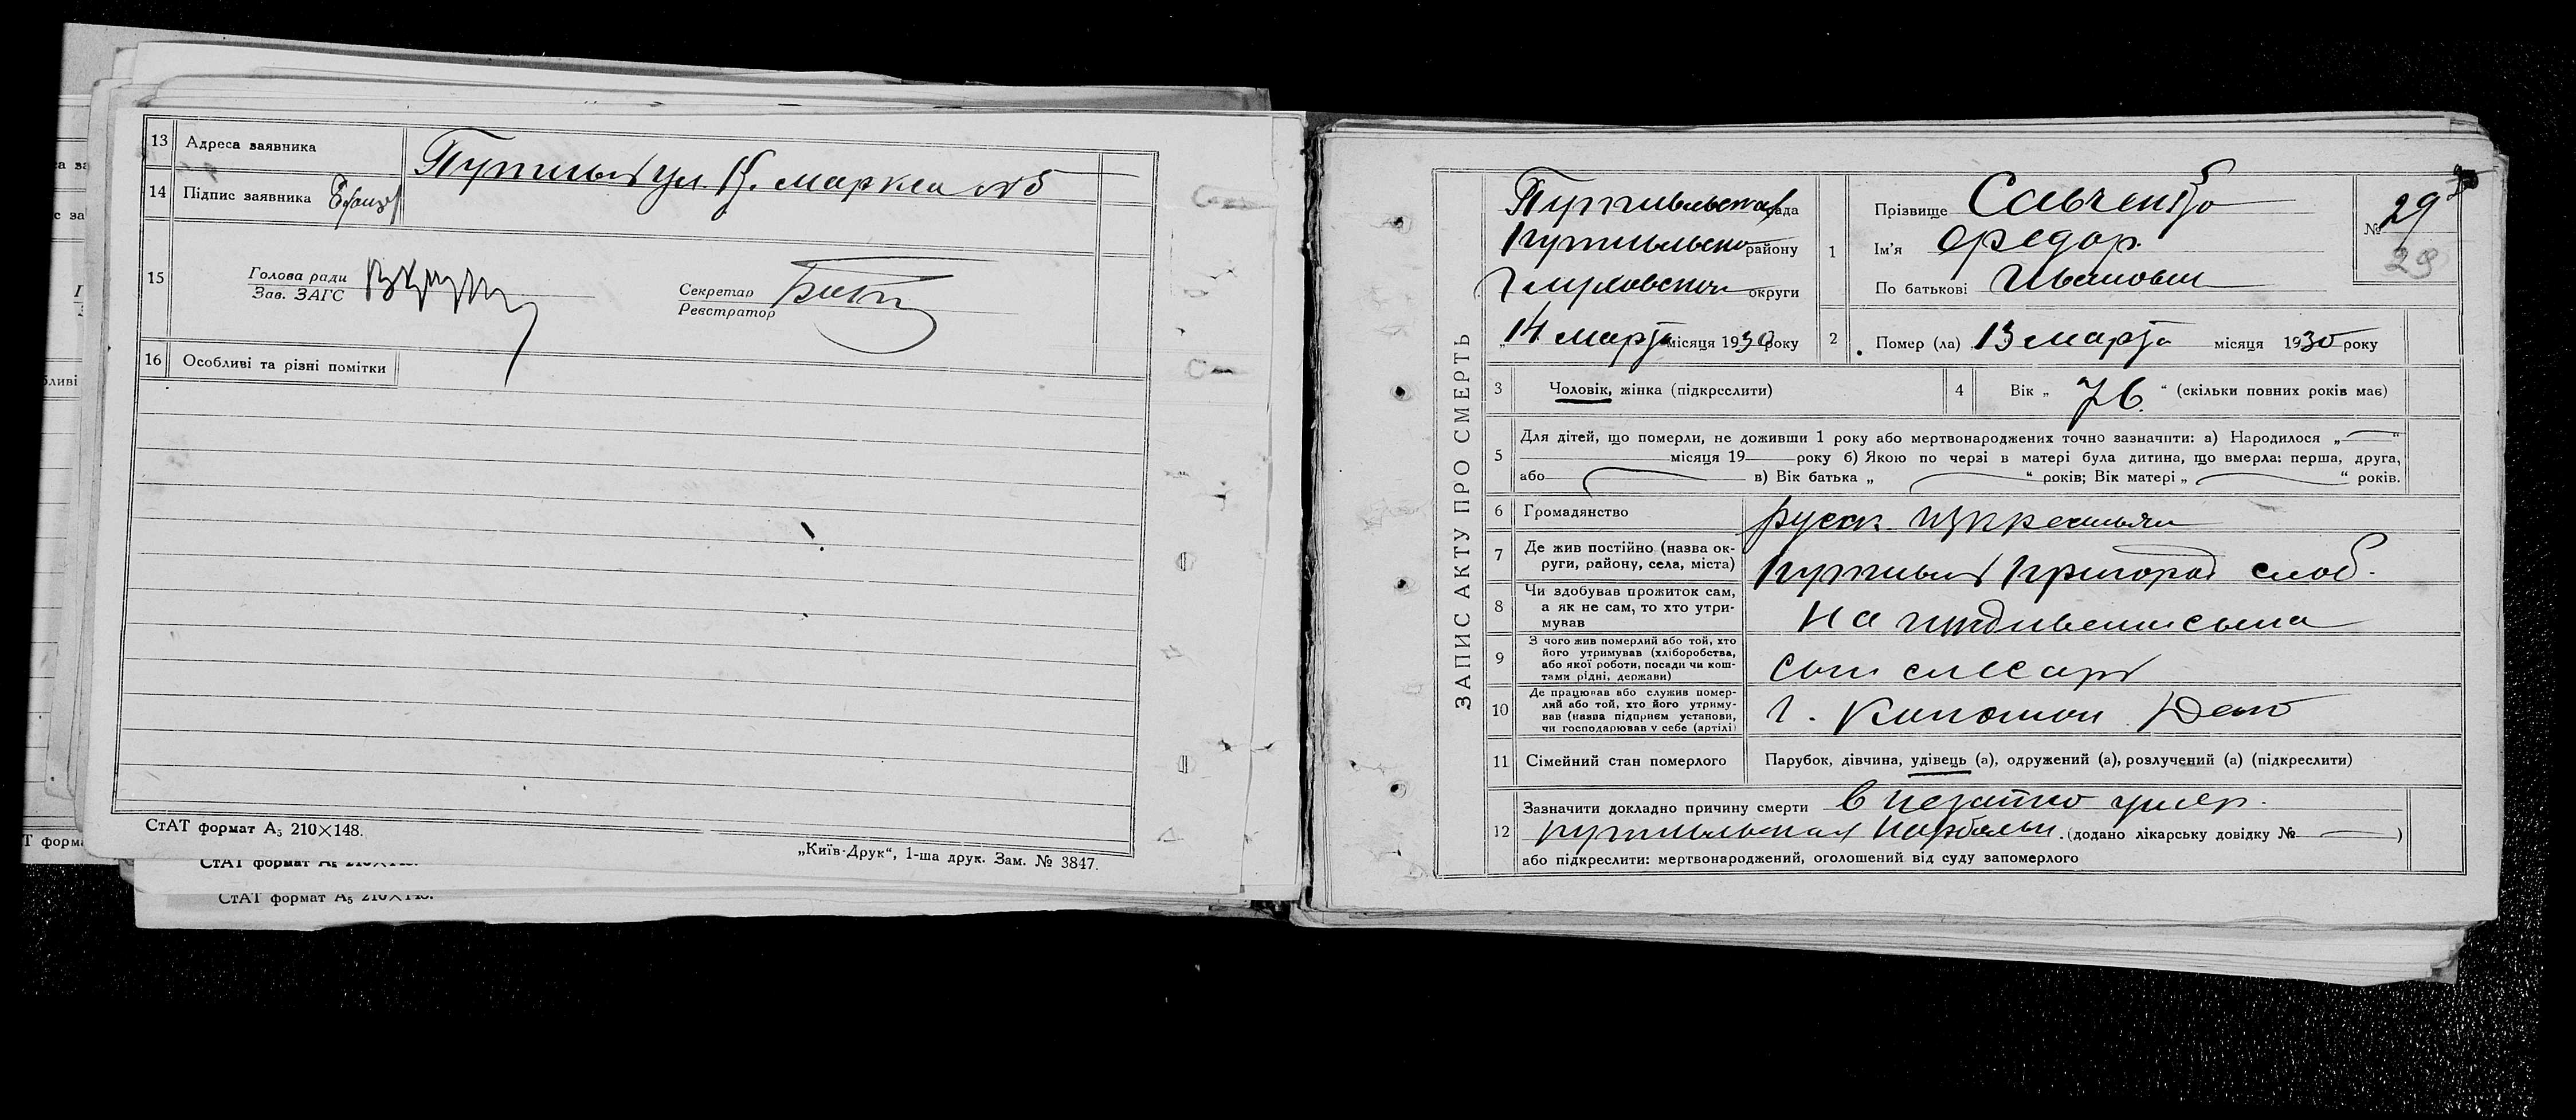 13 Адреса заявника Путивль ул. К. Маркса № 5
14 Підпис заявника
15 Голова ради
Зав. ЗАГС
Секретар
Реєстратор
16 Особливі та різні помітки
СтАТ формат А₅ 210×148.
„Київ-Друк“, 1-ша друк. Зам. № 3847.
СтАТ формат А₅ 210×148.
СтАТ формат А₅ 210×148.
ЗАПИС АКТУ ПРО СМЕРТЬ
Путивльская рада
Путивльско району
Глуховской округи
„14 марта місяця 1930 року
1 Прізвище Савченко
Ім'я Федор.
По батькові Иванович
№ 29
29
2 Помер (ла) 13 марта місяця 1930 року
3 Чоловік, жінка (підкреслити)
4 Вік „ 76. “ (скільки повних років має)
5 Для дітей, що померли, не доживши 1 року або мертвонароджених точно зазначити: а) Народилося „ “
місяця 19 року б) Якою по черзі в матері була дитина, що вмерла: перша, друга,
або в) Вік батька „ “ років; Вік матері „ “ років.
6 Громадянство русск. из крестьян
7 Де жив постійно (назва ок-
руги, району, села, міста) Путивль Пригород слоб.
8 Чи здобував прожиток сам,
а як не сам, то хто утри-
мував на иждивении сына
9 З чого жив померлий або той, хто
його утримував (хліборобства,
або якої роботи, посади чи кош-
тами рідні, держави) сын слесарь
10 Де працював або служив помер-
лий або той, хто його утриму-
вав (назва підприєм установи,
чи господарював у себе (артілі) г. Конотоп Депо
11 Сімейний стан померлого Парубок, дівчина, удівець (а), одружений (а), розлучений (а) (підкреслити)
12 Зазначити докладно причину смерти умер.
Путивльская (додано лікарську довідку № — )
або підкреслити: мертвонароджений, оголошений від суду запомерлого